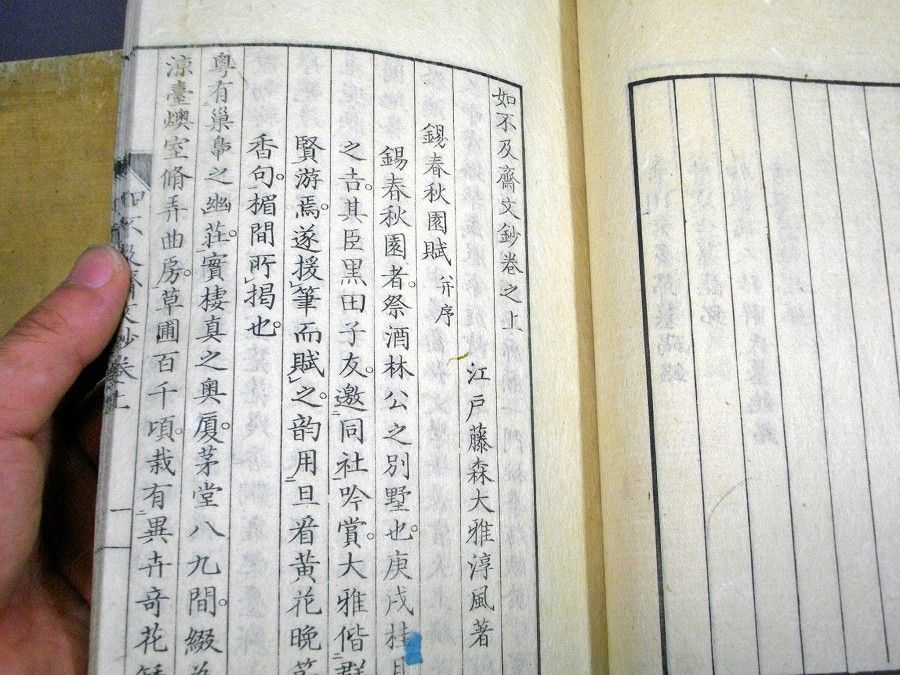 如不及齋文鈔卷之上
江戶藤森大雅淳風著
錫春秋園賦 幷序
錫春秋園者。祭酒林公之別墅也。庚戌桂月
之吉。其臣黑田子友。邀同社吟賞。大雅偕群
賢游焉。遂援筆而賦之。韵用旦看黃花晚節
香句。楣間所揭也。
粵有巢梟之幽莊。實棲真之奧厦。茅堂八九間。綴
涼臺燠室。脩弄曲房。草圃百千頃。栽有異卉奇花
如不及齋文鈔卷上
一